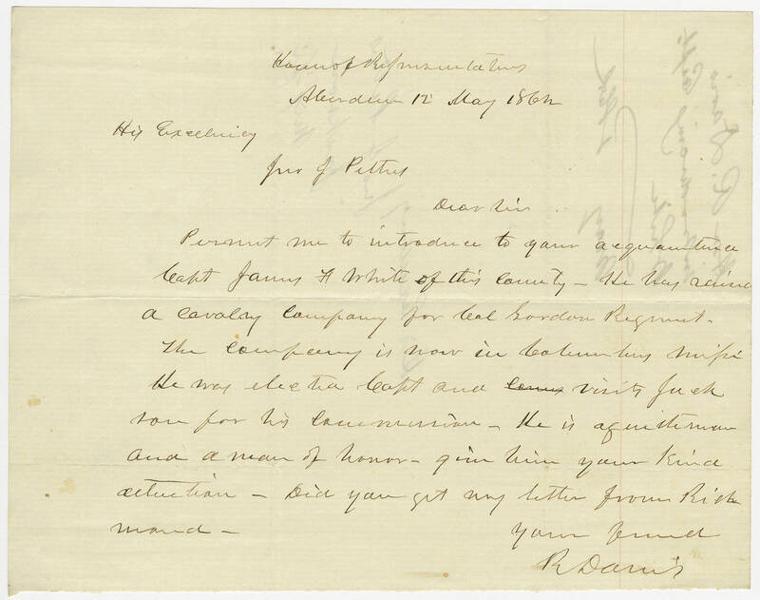 House of Representatives
Aberdeen 12 May 1862
His Excellency
Jno J Pettus
Dear Sir
Permit me to introduce to your acquaintance
Capt James H White of this County - He has raised
a Cavalry Company for Col Gordon Regiment.
The Company is now in Columbus Missi
He was elected Capt and comes visits Jack
son for his Commission - He is a gentleman
and a man of honor - give him your kind
attention - Did you get my letter from Rich
mond -
Your friend
R Davis